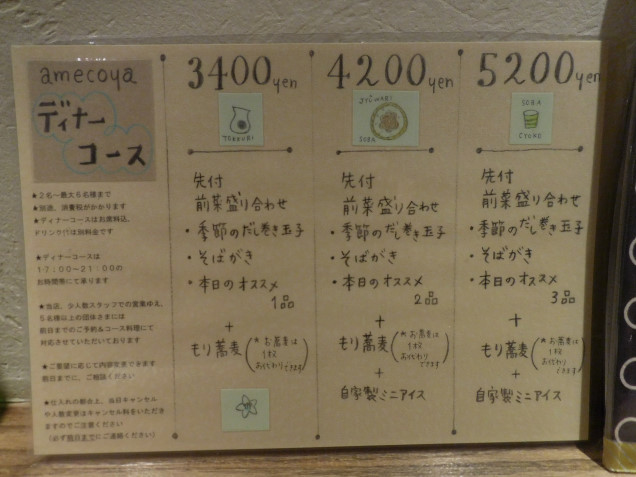 amecoya
ディナー
コース
★2名～最大6名様まで
★別途、消費税がかかります
★ディナーコースはお席料込、
ドリンク代は別料金です
★ディナーコースは
17:00～21:00の
お時間帯にて承ります
★当店、少人数スタッフでの営業ゆえ、
5名様以上の団体さまには
前日までのご予約&コース料理にて
対応させていただいております
★ご要望に応じて内容変更できます
前日までに、ご相談ください
★仕入れの都合上、当日キャンセル
や人数変更はキャンセル料をいただき
ますのでご注意ください
(必ず前日までにご連絡ください)
3400yen
TOKKURI
先付
前菜盛り合わせ
・季節のだし巻き玉子
・そばがき
・本日のオススメ
1品
+
もり蕎麦(*お蕎麦は
1枚
おかわり
できます)
4200yen
JYUWARI
SOBA
先付
前菜盛り合わせ
・季節のだし巻き玉子
・そばがき
・本日のオススメ
2品
+
もり蕎麦(*お蕎麦は
1枚
おかわり
できます)
+
自家製ミニアイス
5200yen
SOBA
CYOKO
先付
前菜盛り合わせ
・季節のだし巻き玉子
・そばがき
・本日のオススメ
3品
+
もり蕎麦(*お蕎麦は
1枚
おかわり
できます)
+
自家製ミニアイス